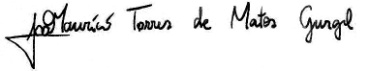 José Maurício Torres de Matos Gurgel